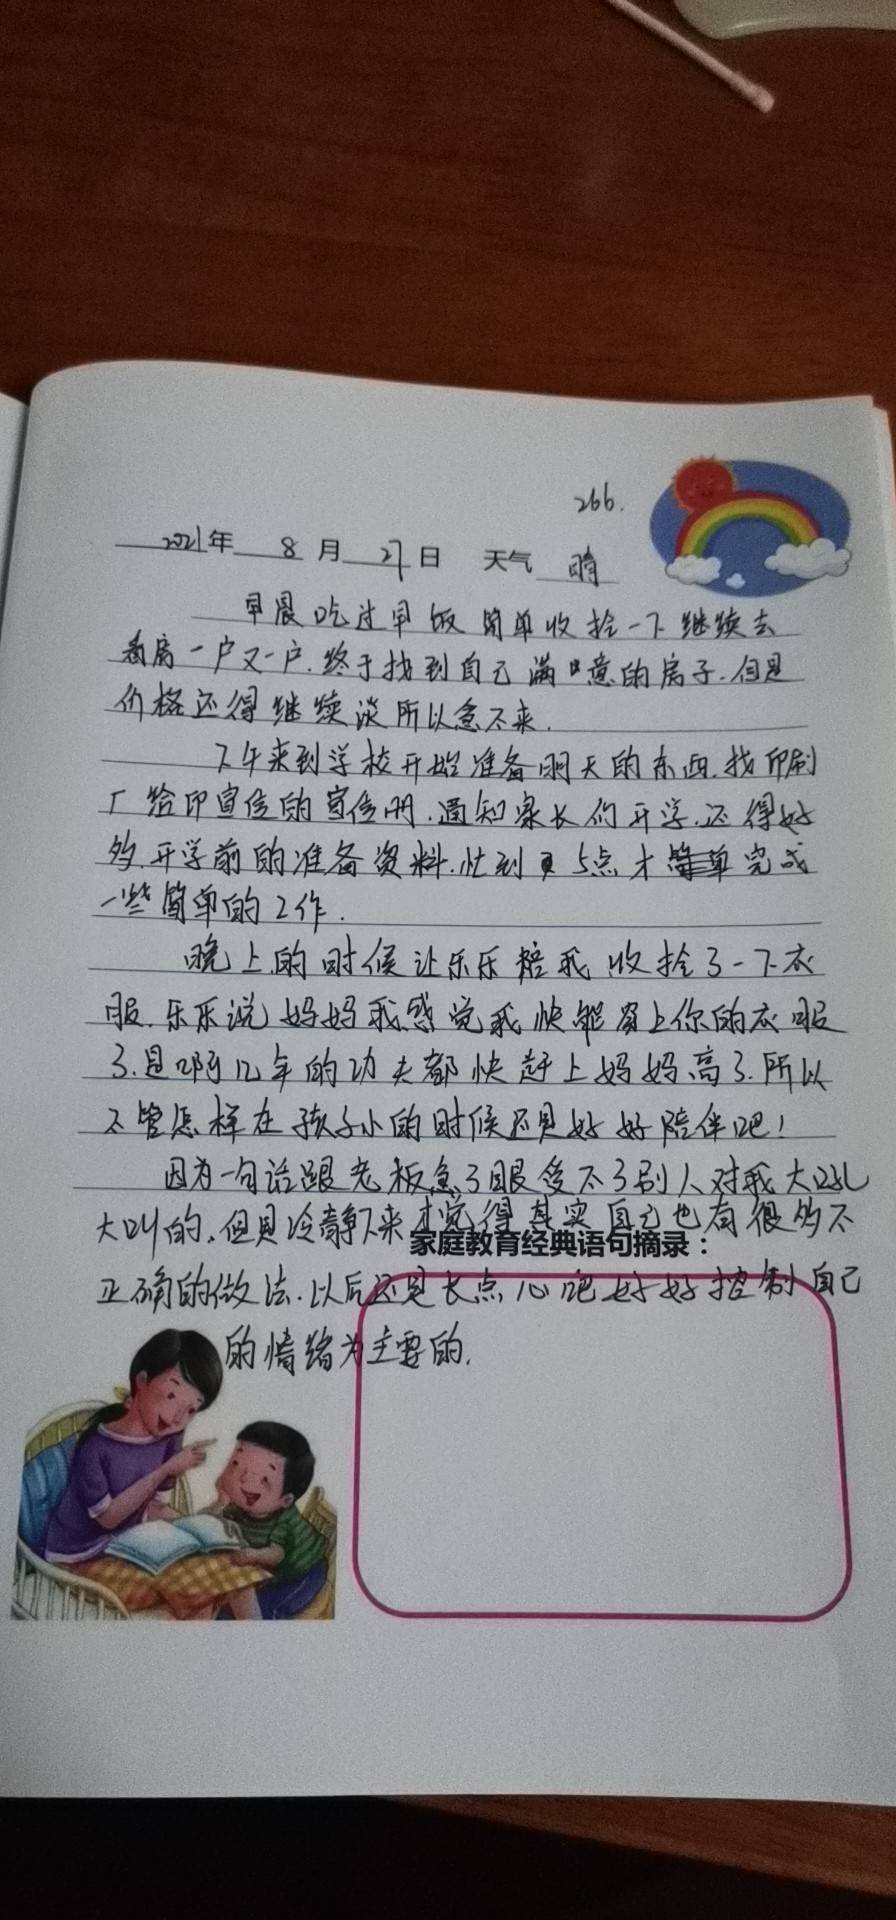 266.
2021年 8月 27日 天气 晴
早晨吃过早饭简单收拾一下继续去
看房一户又一户.终于找到自己满意的房子.但是
价格还得继续谈所以急不来.
下午来到学校开始准备明天的东西.找印刷
厂给印宣传的宣传册.通知家长们开学.还得好
多开学前的准备资料.忙到5点才简单完成
一些简单的工作.
晚上的时候让乐乐陪我收拾了一下衣
服.乐乐说妈妈我感觉我快能穿上你的衣服
了.是啊几年的功夫都快赶上妈妈高了.所以
不管怎样在孩子小的时候还是好好陪伴吧!
因为一句话跟老板急了眼受不了别人对我大吼
大叫的.但是冷静下来才觉得其实自己也有很多不
家庭教育经典语句摘录：
正确的做法.以后还是长点心吧好好控制自己
的情绪为主要的.